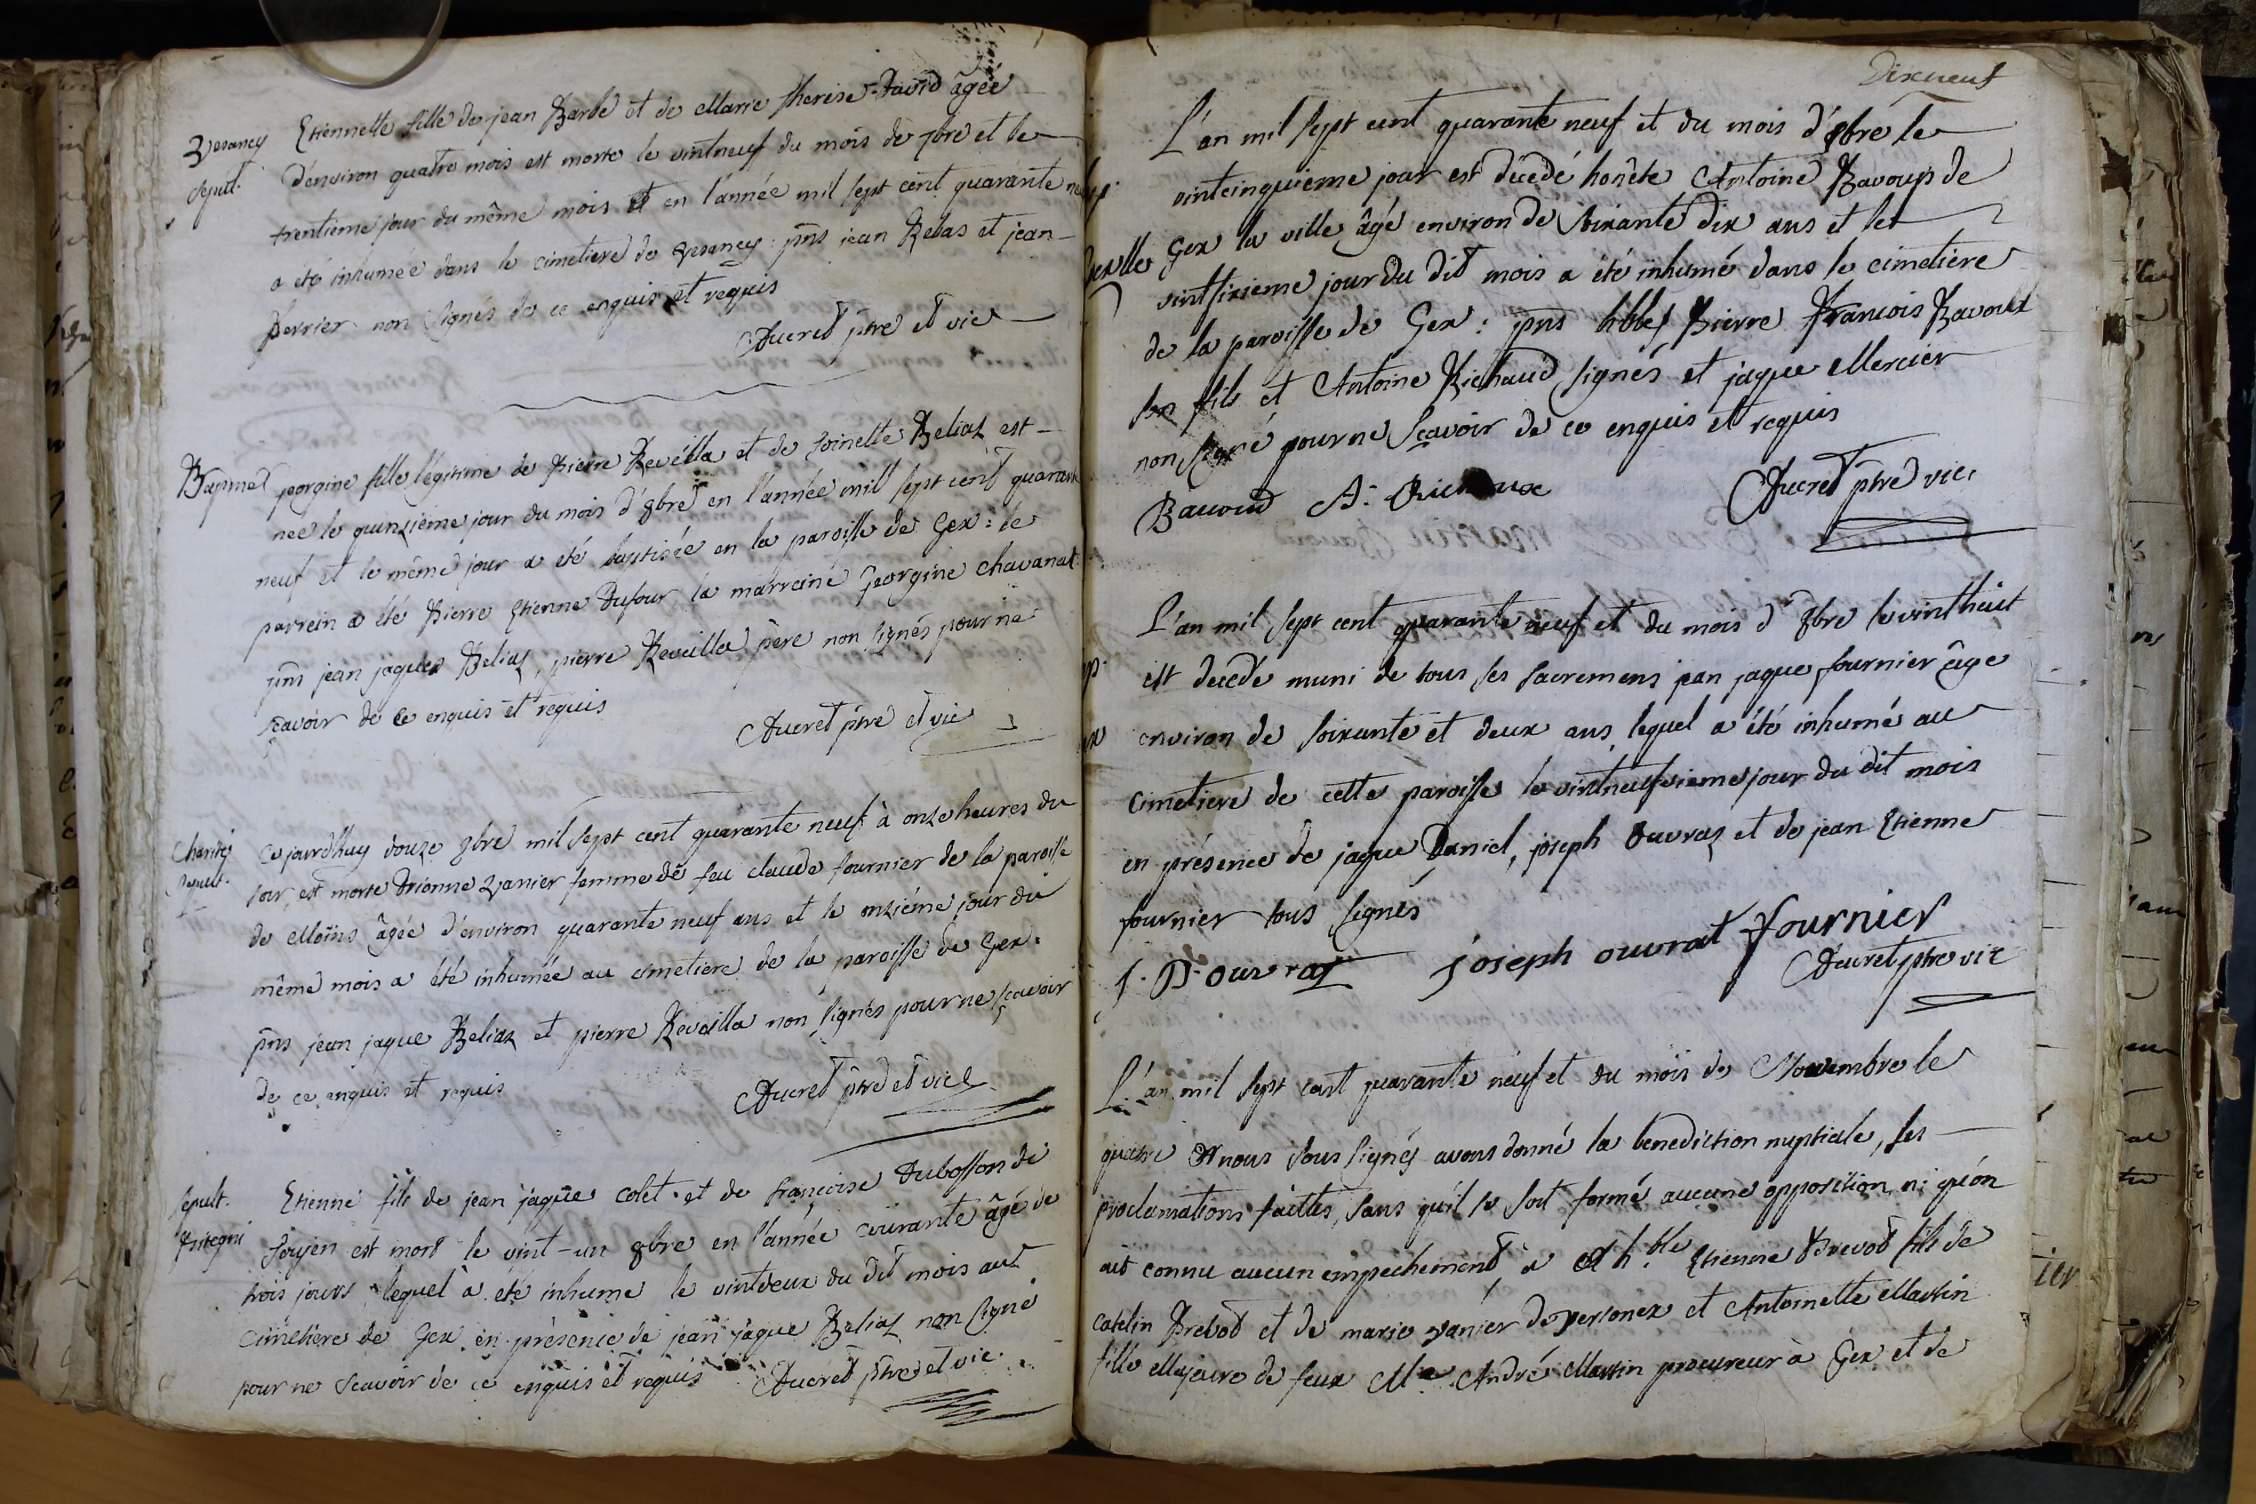 Vesancy
sepult.
Etiennette fille de jean Barbe et de Marie Therese David âgée
d'environ quatre mois est morte le vintneuf du mois de 7bre et le
trentieme jour du même mois et en l'année mil sept cent quarante neuf
a été inhumée dans le cimetiere de Vesancy: pñs jean Rebas et jean
perrier non signés de ce enquis et requis
Ducret ptre et vic
Baptme
georgine fille légitime de Pierre Reveilla et de Beliaz est
née le quinzième jour du mois d'8bre en l'année mil sept cent quarante
neuf et le même jour a été baptisée en la paroisse de Gex: le
parrein a été Pierre Etienne Dufour la marreine Georgine chavanat
pñs jean jaques Beliaz, pierre Reveilla père non signés pour ne
scavoir de ce enquis et requis
Ducret ptre et vic
sepult.
ce jourdhuy douze 8bre mil sept cent quarante neuf à onze heures du
soir, est morte Drionne Vanier femme de feu claude fournier de la paroisse
de Moïns âgée d'environ quarante neuf ans et le onzième jour du
même mois a été inhumée au cimetiere de la paroisse de Gex.
pñs jean jaque Beliaz et pierre Reveilla non signés pour ne scavoir
de ce enquis et requis
Ducret ptre et vic
sepult.
Etienne fils de jean jaque colet et de françoise Dubosson de
est mort le vint-un 8bre en l'année courante âgé de
trois jours lequel a été inhumé le vintdeux du dit mois au
cimetiere de Gex en présence de jean jaque Beliaz non signé
pour ne scavoir de ce enquis et requis Ducret ptre et vic.
Dixneuf
L'an mil sept cent quarante neuf et du mois d'8bre le
vintcinquieme jour est décedé honête Antoine Bavoup de
Gex la ville âgé environ de soixante dix ans et le
vintsixieme jour du dit mois a été inhumé dans le cimetière
de la paroisse de Gex: pñs hbles Pierre François Bavoud
son fils et Antoine Richaud signés et jaque Mercier
non signé pour ne scavoir de ce enquis et requis
Bavoud A. Ducret ptre vic
L'an mil sept cent quarante neuf et du mois d'8bre le vinthuit
est decedé muni de tous ses sacremens jean jaque fournier âge
environ de soixante et deux ans lequel a été inhumé au
cimetiere de cette paroisse le vintneufvieme jour du dit mois
en présence de jaque Daniel, joseph Ouvraz et de jean Etienne
fournier tous signés
J. D. Ouvraz joseph ouvrat fournier
Ducret ptre vic
L'an mil sept cent quarante neuf et du mois de Novembre le
quatre nous sous signés avons donné la benediction nuptiale, les
proclamations faittes, sans qu'il se soit formé aucune opposition ni qu'on
ait connu aucun empechement, à h.ble Etienne Prevod fils de
catelin Prevod et de marie vanier de versonex et Antoinette Martin
fille Majeure de feux Me André Martin procureur à Gex et de